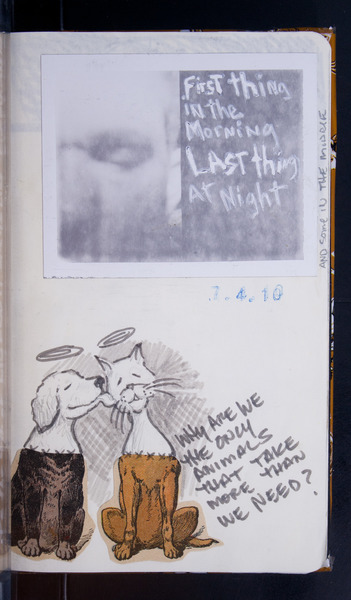 First thing
in the
Morning
LAST thing
At Night
AND Some IN THE MIDDLE
7.4.10
WHY ARE WE
THE ONLY
ANIMALS
THAT TAKE
MORE THAN
WE NEED?